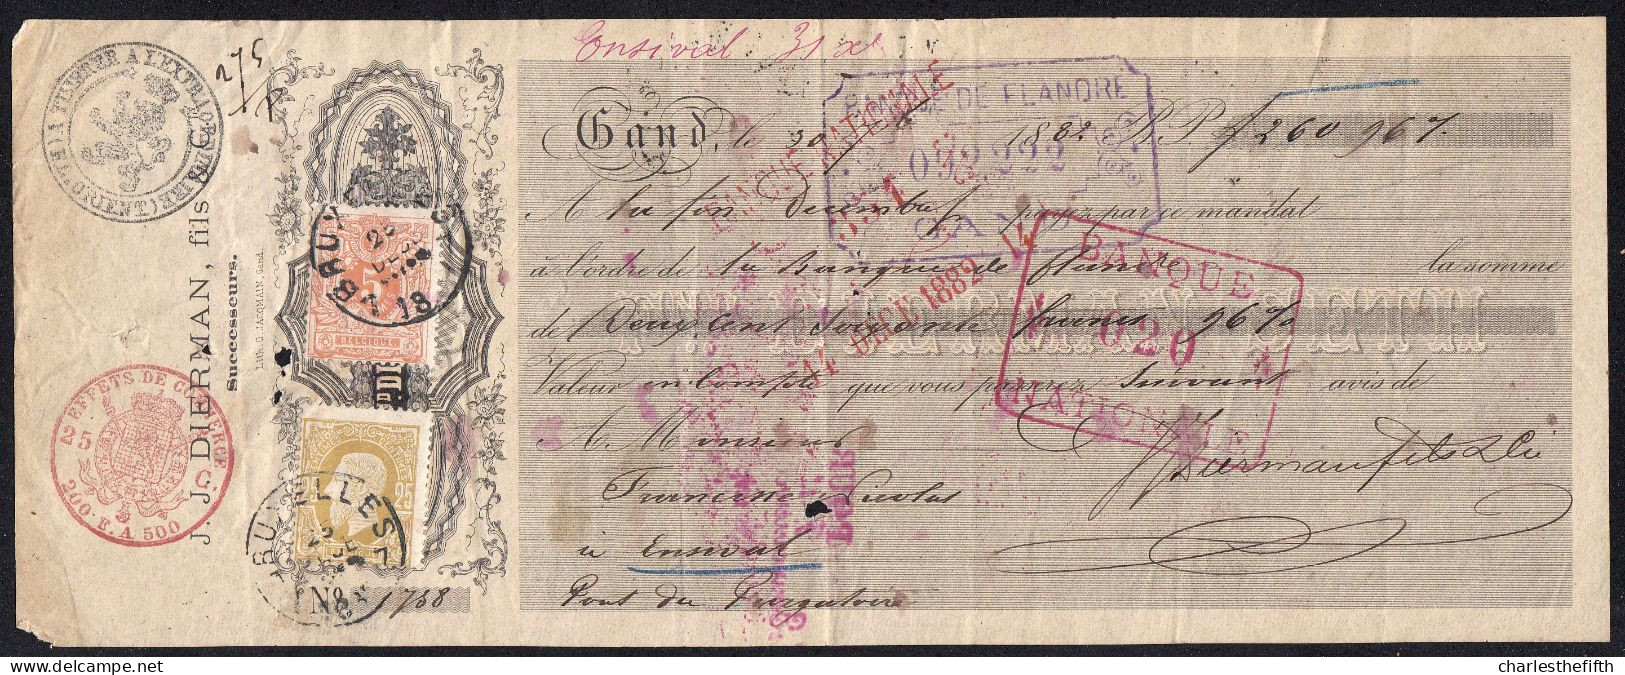 Ensival 31
275
J. J. DIERMAN, fils & Cie
Successeurs.
EFFETS DE COMMERCE
5 C.
200 F. A 500
5
BELGIQUE
BRUXELLES
25
BRUXELLES 7
No 1738
BANQUE DE FLANDRE
092222
GAND
BANQUE NATIONALE
14 DECE 1882 14
BANQUE
620
NATIONALE
Gand, le 30 1882 B.P.f 260 96 %
A la fin Décembre payez par ce mandat
à l'ordre de la Banque de Flandre la somme
de Deux cent soixante francs 96 %
Valeur en compte que vous passerez suivant avis de
A Monsieur
JJ Dierman fils & Cie
Nicolas
à Ensival
Pont du Purgatoire
charlesthefifth